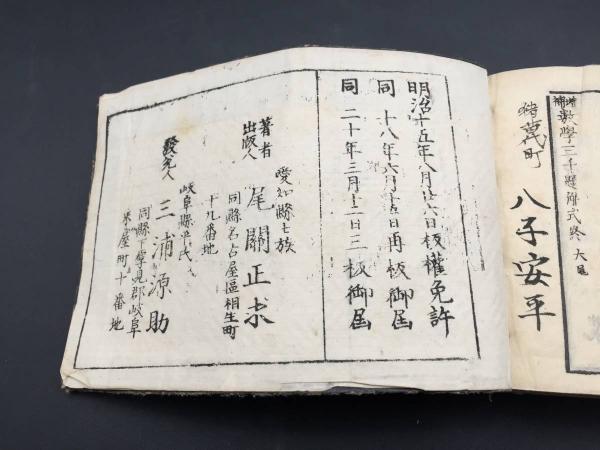 増補數學三千題解式終 大尾
猪苗代町
八子安平
明治十五年八月廿六日板權免許
同 十八年六月十五日再板御届
同 二十年三月十二日三板御届
愛知縣士族
著者
出版人
尾關正求
同縣名古屋區相生町
十九番地
岐阜縣平民
發兌人
三浦源助
同縣下厚見郡岐阜
米屋町十番地